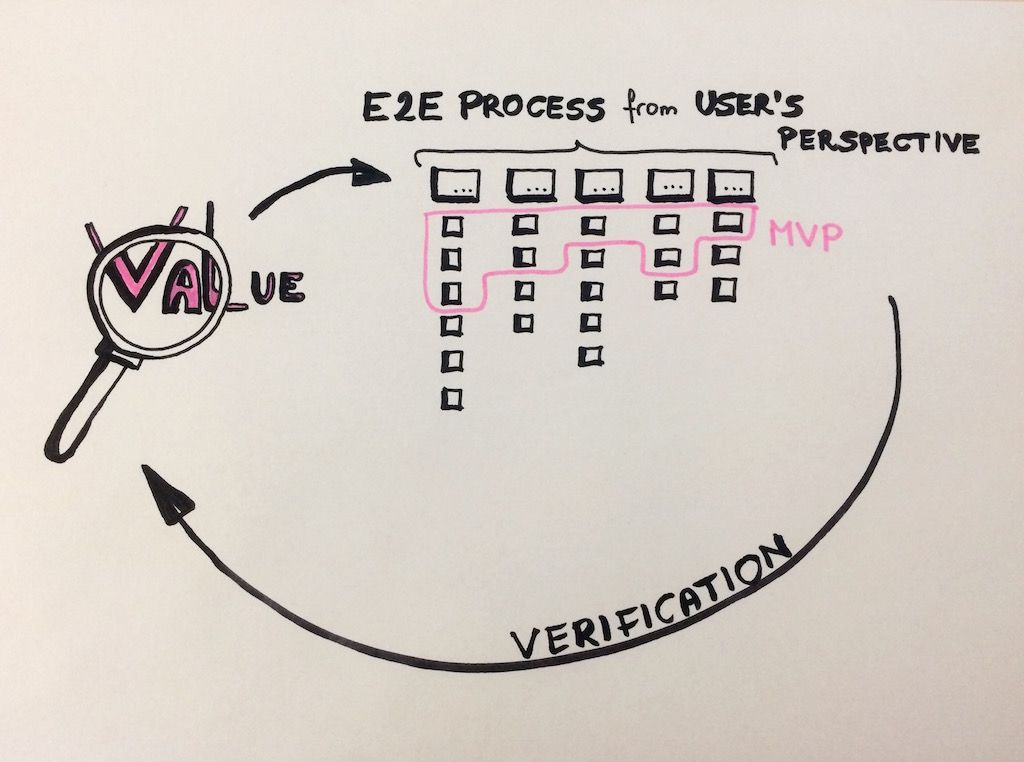 E2E PROCESS from USER'S
PERSPECTIVE
... ... ... ... ...
MVP
VALUE
VERIFICATION